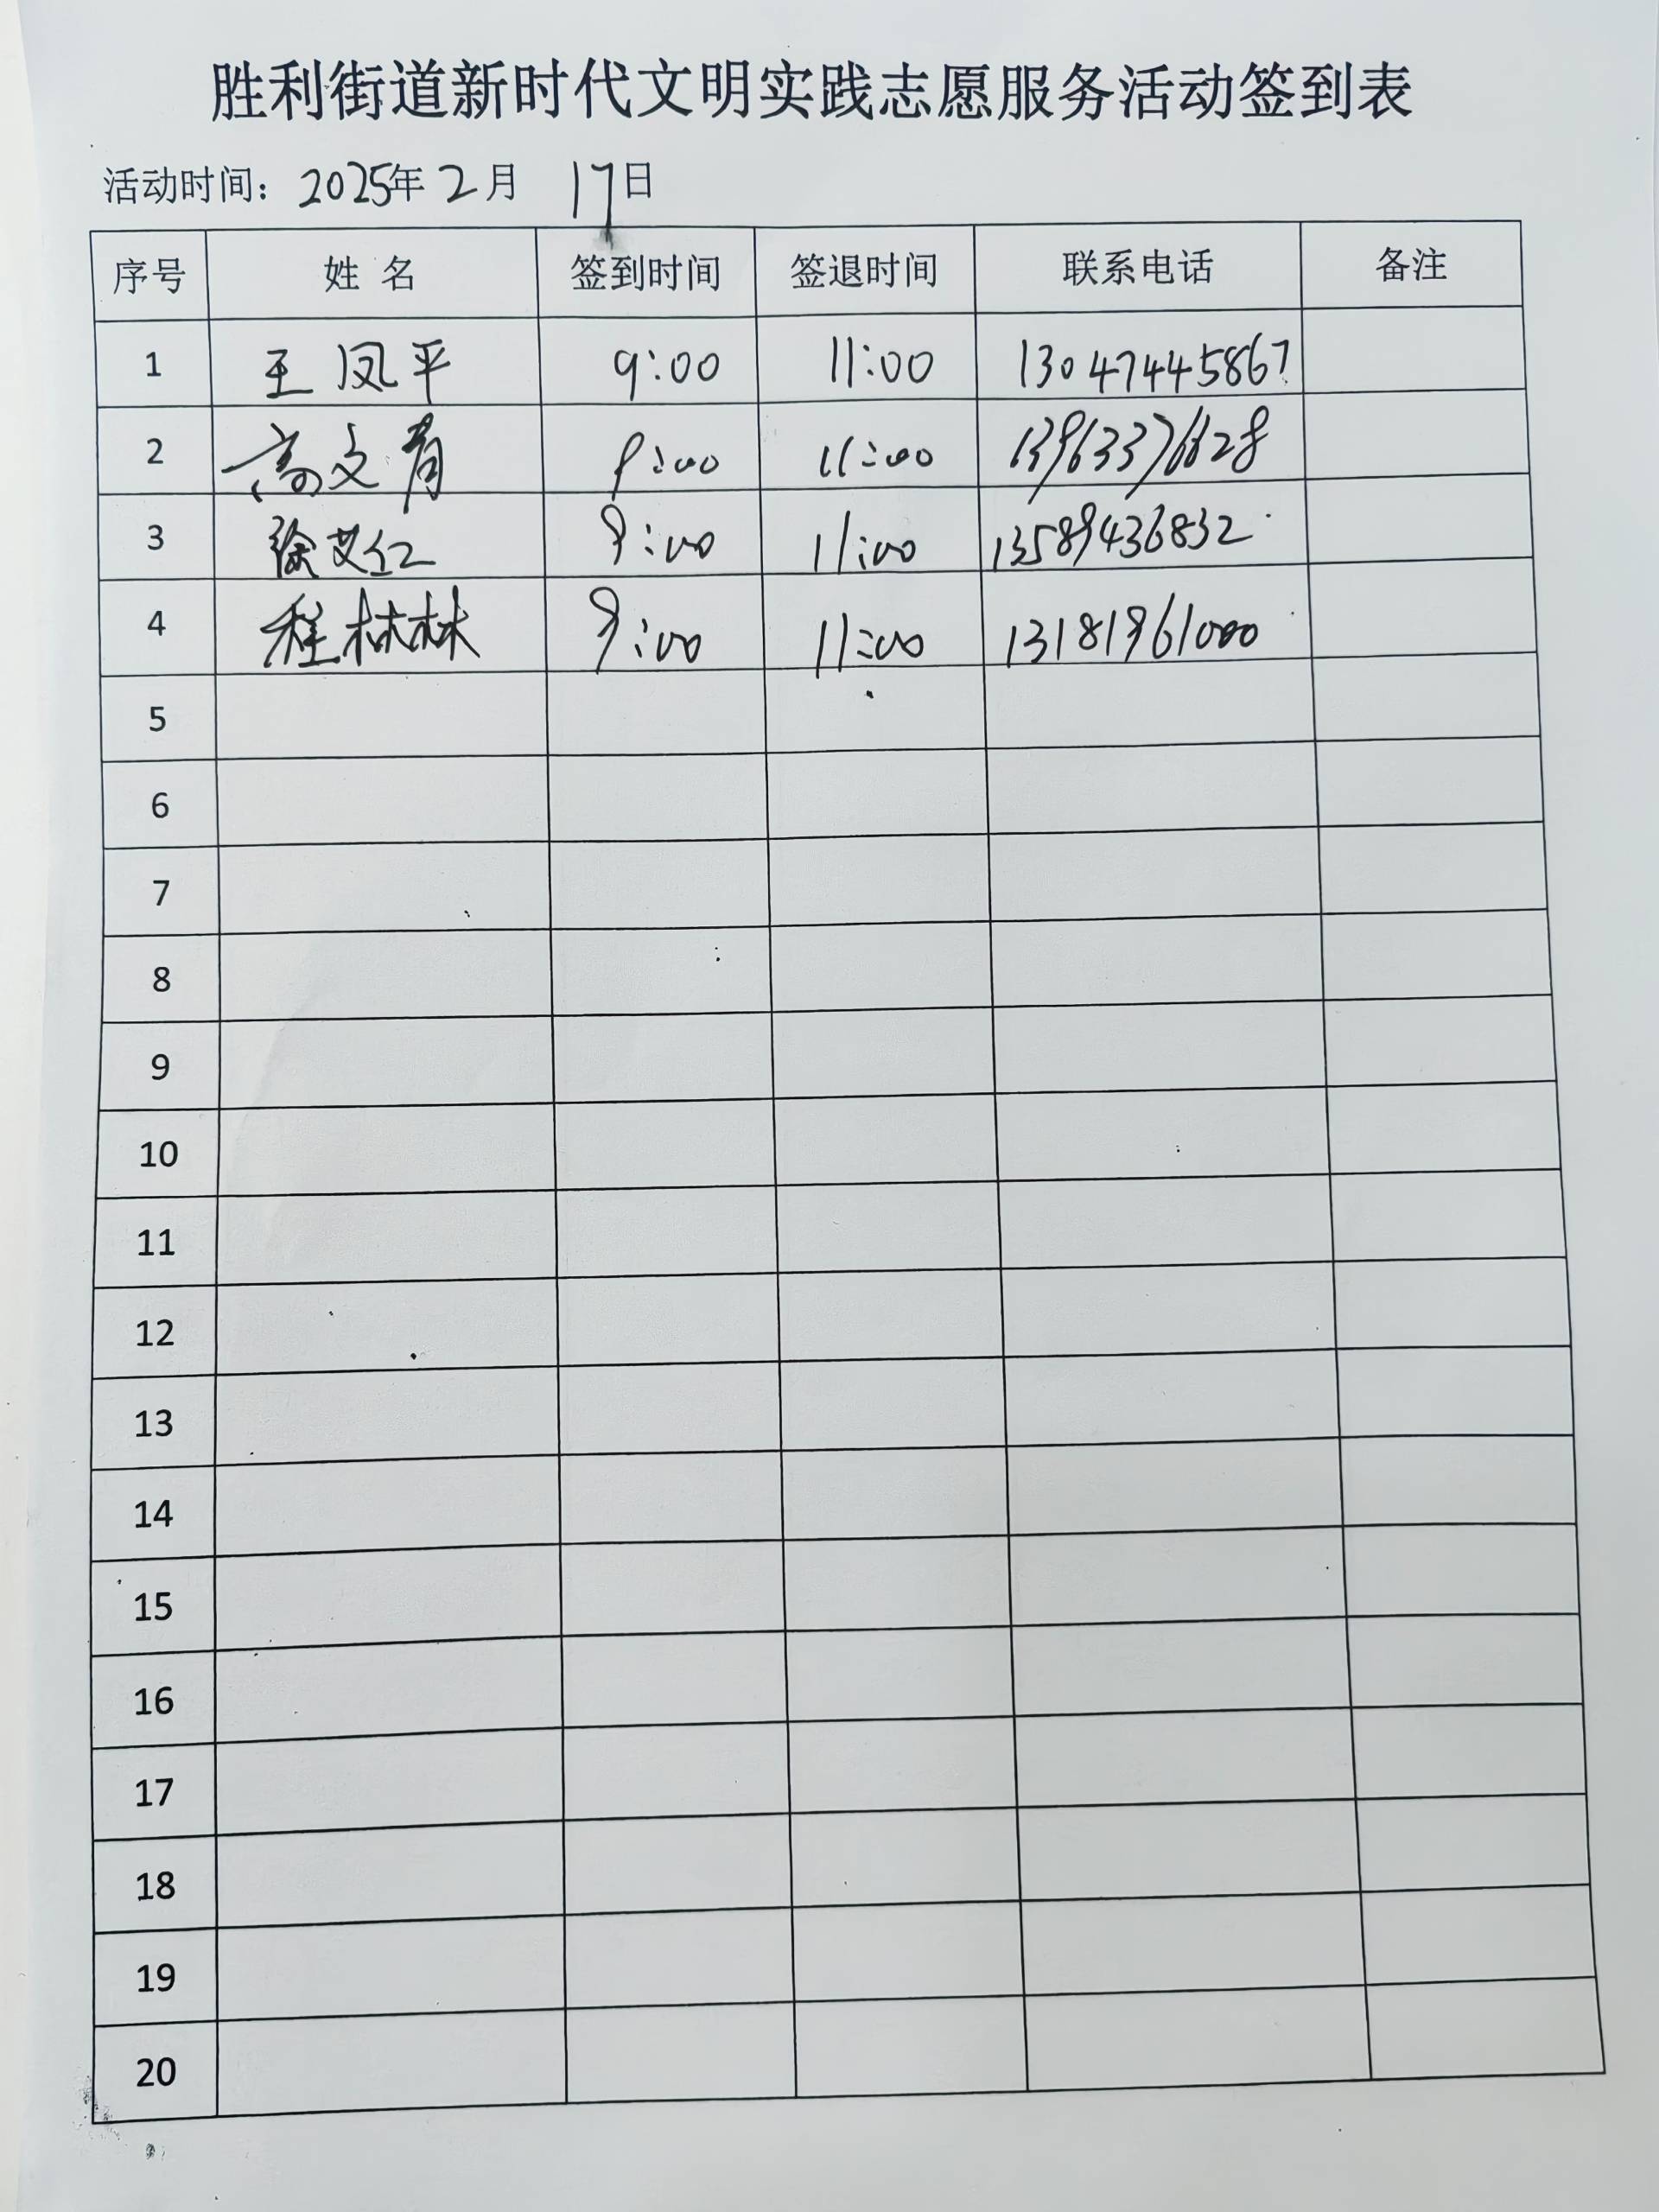 胜利街道新时代文明实践志愿服务活动签到表
活动时间：2025年2月 17日
序号 姓名 签到时间 签退时间 联系电话 备注
1 王凤平 9:00 11:00 13047445867
2 高文青 9:00 11:00
3 徐艾红 9:00 11:00 13589436832
4 程林林 9:00 11:00 13181961000
5
6
7
8
9
10
11
12
13
14
15
16
17
18
19
20